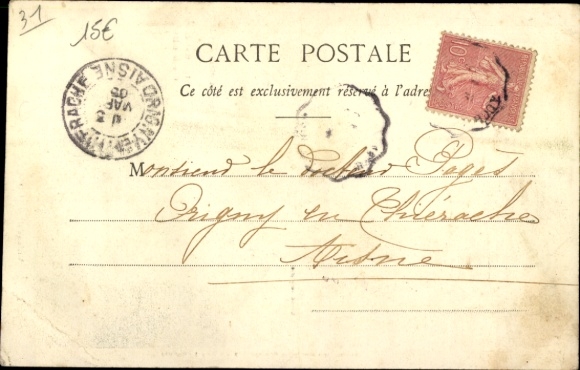 31
15€
CARTE POSTALE
Ce côté est exclusivement réservé à l'adres
10
ORIGNY-EN-THIERACHE AISNE
05
Monsieur le docteur Pagès
Origny en Thiérache
Aisne